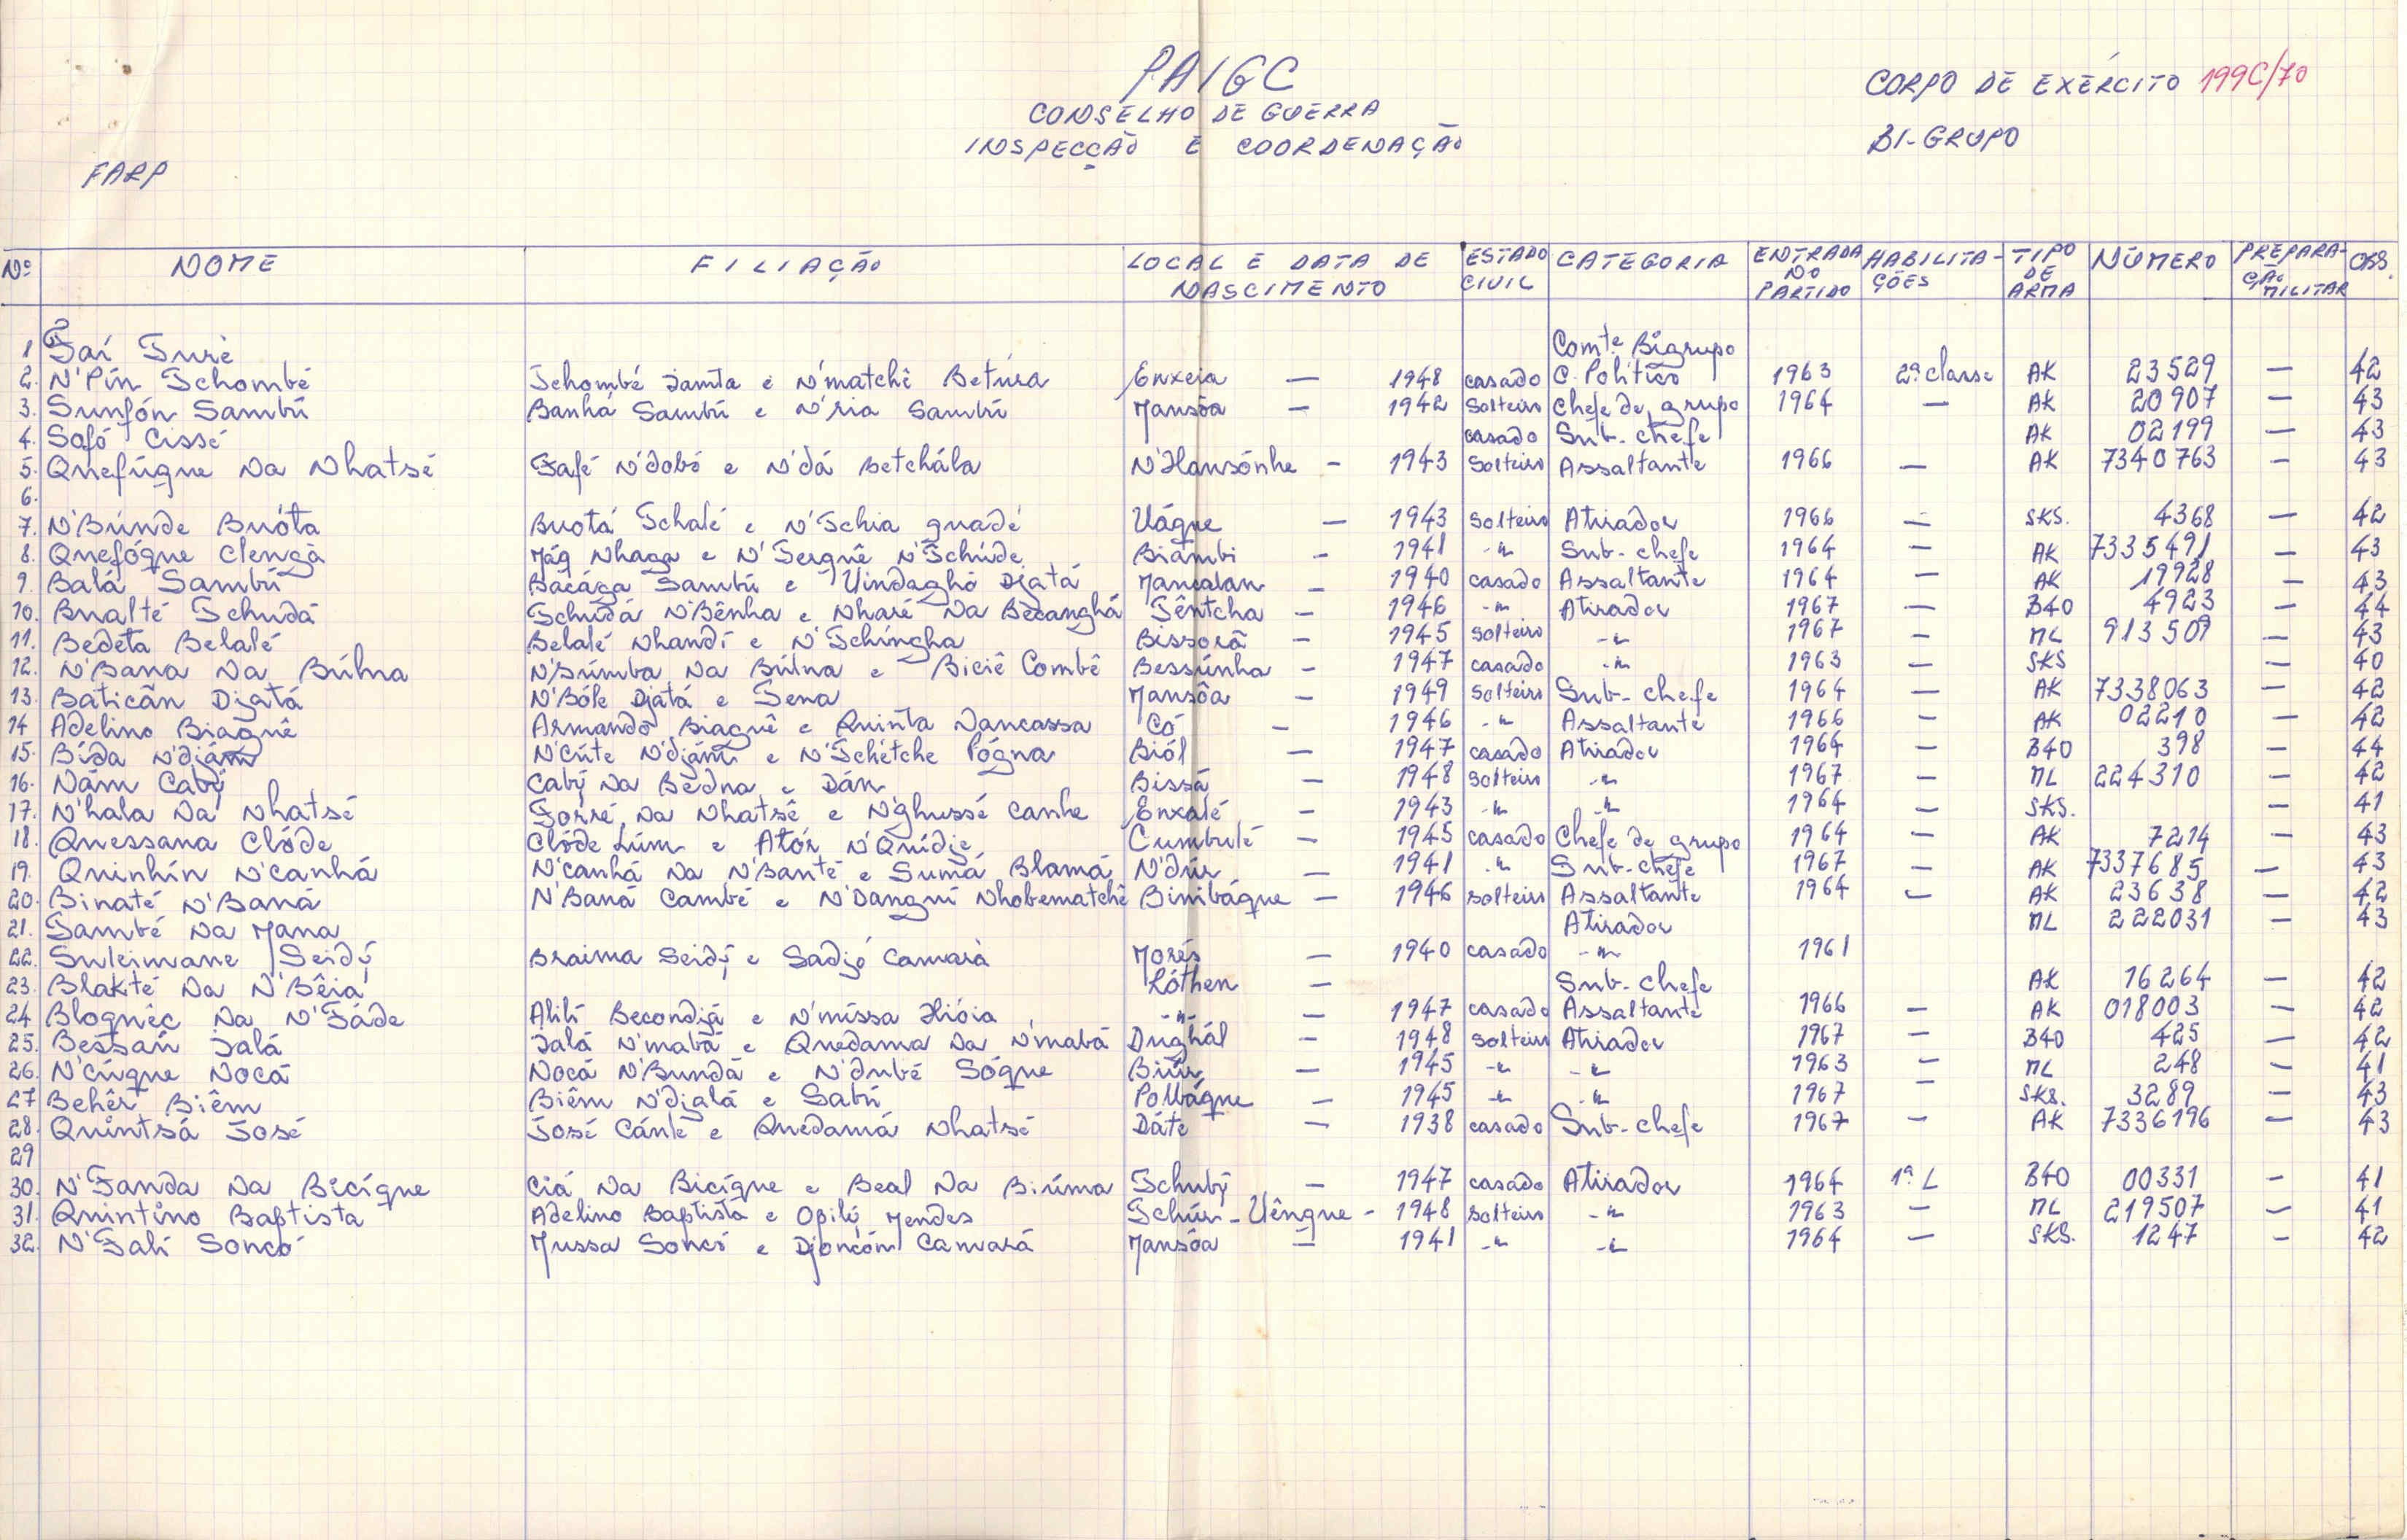 PAIGC
CONSELHO DE GUERRA
INSPECÇÃO E COORDENAÇÃO
CORPO DE EXÉRCITO 199C/70
BI-GRUPO
FARP
Nº NOME FILIAÇÃO LOCAL E DATA DE NASCIMENTO ESTADO CIVIL CATEGORIA ENTRADA NO PARTIDO HABILITAÇÕES TIPO DE ARMA NÚMERO PREPARAÇÃO MILITAR OBS.
1 Taí Turé Comte. Bigrupo
2. N'Pín Tchombé Tchombé Iamta e N'matchê Betúra Enxeia — 1948 casado C. Político 1963 2ª classe AK 23529 — 42
3. Sunfón Sambú Banhá Sambú e N'ria Sambú Mansôa — 1942 Solteiro Chefe de grupo 1964 — AK 20907 — 43
4. Safó Cissé casado Sub-chefe AK 02199 — 43
5. Quefúgue Na Nhatsé Tafé N'dobó e N'dá Betchála N'Hansónhe — 1943 Solteiro Assaltante 1966 — AK 7340763 — 43
6.
7. N'Búnde Buóta Buotá Tchalé e N'Tchia guadé Uáque — 1943 Solteiro Atirador 1966 — SKS. 4368 — 42
8. Quefógue Clengà Máq Nhaga e N'Tergnê N'Tchúde Biambi — 1941 -"- Sub-chefe 1964 — AK 7335491 — 43
9. Balá Sambú Bacága Sambú e Uíndaghó Djatá Mancalan — 1940 casado Assaltante 1964 — AK 19928 — 43
10. Bualté Tchudá Tchudá N'Bênha e Nharé Na Becanghá Têntcha — 1946 -"- Atirador 1967 — B40 4923 — 44
11. Bedeta Belalé Belalé Nhandí e N'Tchíngha Bissorã — 1945 Solteiro -"- 1967 — ML 913509 — 43
12. N'Bana Na Búlna N'Búmba Na Búlna e Biciê Combê Bessúnha — 1947 casado -"- 1963 — SKS — 40
13. Baticãn Djatá N'Bóle Djatá e Tena Mansôa — 1949 Solteiro Sub-chefe 1964 — AK 7338063 — 42
14 Adelino Biagnê Armando Biagnê e Quinta Nancassa Có — 1946 -"- Assaltante 1966 — AK 02210 — 42
15. Bída N'djám N'Cúte N'djám e N'Tchétche Pógna Biól — 1947 casado Atirador 1964 — B40 398 — 44
16. Nám Cabý Cabý Na Bedna e Dán Bissá — 1948 Solteiro -"- 1967 — ML 224310 — 42
17. N'hala Na Nhatsé Torré Na Nhatsé e N'ghussé canhe Enxalé — 1943 -"- -"- 1964 — SKS. — 41
18. Quessana Clóde Clóde Lúm e Atór N'Quídje Cumbulé — 1945 casado Chefe de grupo 1964 — AK 7214 — 43
19. Quinhín N'canhá N'canhá Na N'Banté e Sumá Blamá N'dúr — 1941 -"- Sub-chefe 1967 — AK 7337685 — 43
20. Binaté N'Baná N'Baná Cambé e N'Dangní Nhobematchê Bimbáque — 1946 Solteiro Assaltante 1964 — AK 23638 — 42
21. També Na Mana Atirador ML 222031 — 43
22. Suleimane Seidý Braima Seidý e Sadjó Camará Morés — 1940 casado -"- 1961
23. Blakté Na N'Bêia Lóthen — Sub-chefe AK 16264 — 42
24 Bloquêc Na N'Táde Alilí Becondjá e N'míssa Hióia -"- — 1947 casado Assaltante 1966 — AK 018003 — 42
25. Bessán Ialá Ialá N'mabá e Quedama Na N'mabá Dughál — 1948 Solteiro Atirador 1967 — B40 425 — 42
26. N'Cúque Nocá Nocá N'Bundá e N'dubé Sóque Biúr — 1945 -"- -"- 1963 — ML 248 — 41
27 Behêr Biêm Biêm N'djalá e Sabú Polbáque — 1945 -"- -"- 1967 — SKS. 3289 — 43
28. Quintsá José José Cánte e Quedamá Nhatsé Dáte — 1938 casado Sub-chefe 1967 — AK 7336196 — 43
29
30. N'Tanda Na Bicíque Ciá Na Bicíque e Beal Na Birúma Tchubý — 1947 casado Atirador 1964 1ª L B40 00331 — 41
31. Quintino Baptista Adelino Baptista e Opiló Mendes Tchúr-Uêngue — 1948 Solteiro -"- 1963 — ML 219507 — 41
32. N'Falí Soncó Mussa Soncó e Djoncóm Camará Mansôa — 1941 -"- -"- 1964 — SKS. 1247 — 42